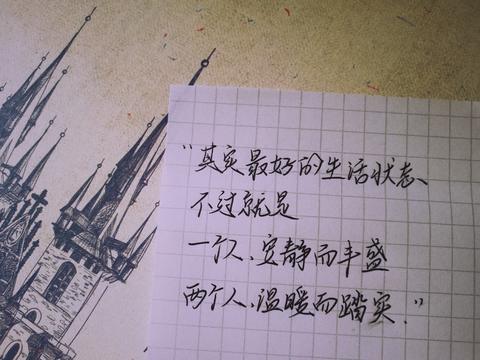 "其实最好的生活状态、
不过就是
一个人、安静而丰盛
两个人、温暖而踏实."